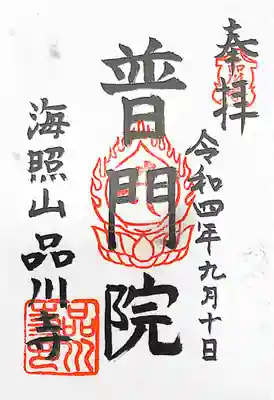 奉拝
令和四年九月十日
普門院
海照山 品川寺